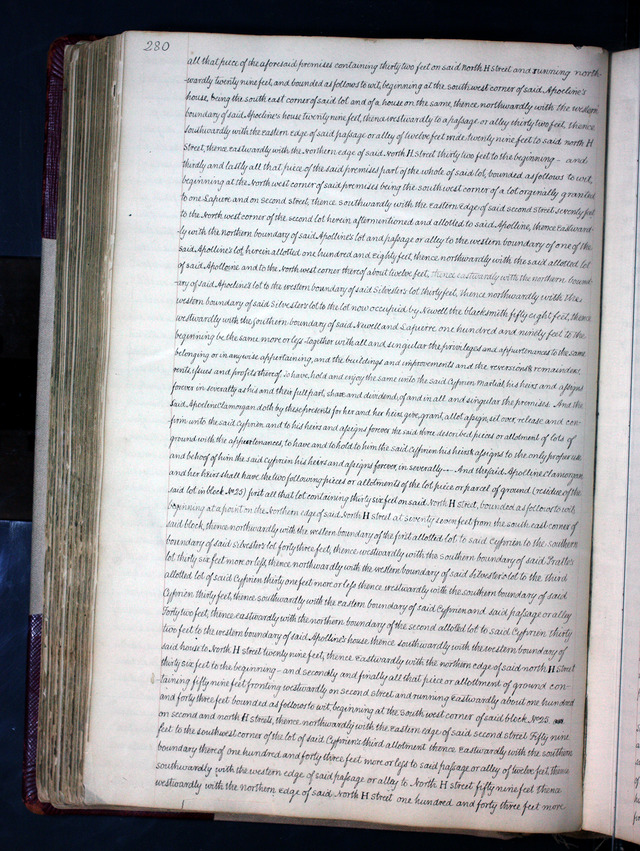 280
all that piece of the aforesaid premises containing thirty two feet on said North H street and running north-
wardly twenty nine feet, and bounded as follows to wit, beginning at the south west corner of said Apoeline's
house, being the south east corner of said lot and of a house on the same, thence northwardly with the western
boundary of said Apoeline's house twenty nine feet, thence westwardly to a passage or alley thirty two feet, thence
southwardly with the eastern edge of said passage or alley of twelve feet wide, twenty nine feet to said north H
street, thence eastwardly with the Northern edge of said North H street thirty two feet to the beginning - and
thirdly and lastly all that piece of the said premises part of the whole of said lot, bounded as follows to wit,
beginning at the North west corner of said premises being the south west corner of a lot orgenally granted
to one Lapiere and on second street, thence southwardly with the Eastern edge of said second street seventy feet
to the North west corner of the second lot herein aftermentioned and allotted to said Apolline, thence Eastward-
-ly with the northern boundary of said Apolline's lot and passage or alley to the western boundary of one of the
said Apolline's lot, herein allotted one hundred and eighty feet, thence northwardly with the said allotted lot
of said Apolloine and to the North west corner thereof about twelve feet, thence eastwardly with the northern bound-
-ary of said Apoeline's lot to the western boundary of said Silvester's lot thirty feet, thence northwardly with the
western boundary of said Silvester's lot to the lot now occupied by Newell the blacksmith fifty eight feet, thence
westwardly with the southern boundary of said Newell and Lapierre one hundred and ninety feet to the
beginning be the same more or less together with all and singular the privileges and appurtenances to the same
belonging or in any wise appertaining, and the buildings and improvements and the reversions & remainders,
rents, issues and profits thereof, to have, hold and enjoy the same unto the said Cyprien Martial his heirs and assigns
forever in severalty as his and their full part, share and dividend, of and in all and singular the premises. And the
said Apoeline Clamorgan doth by these presents for her and her heirs give, grant, allot assign, set over, release and con-
firm unto the said Cyprien and to his heirs and assigns forever the said three described pieces or allotment of lots of
ground with the appurtenances, to have and to hold to him the said Cyprien his heirs & assigns to the only proper use
and behoof of him the said Cyprien his heirs and assigns forever, in severalty - And the said Apolline Clamorgan
and her heirs shall have the two following pieces or allotments of the lot piece or parcel of ground (residue of the
said lot in block No. 25) first all that lot containing thirty six feet on said North H street, bounded as follows to wit
beginning at a point on the Northern edge of said North H street at seventy seven feet from the south east corner of
said block, thence northwardly with the western boundary of the first allotted lot to said Cyprien to the southern
boundary of said Silvester's lot forty three feet, thence westwardly with the southern boundary of said
lot thirty six feet more or less, thence northwardly with the western boundary of said Silvester's lot to the third
allotted lot of said Cyprien thirty one feet more or less thence westwardly with the southern boundary of said
Cyprien thirty feet, thence southwardly with the eastern boundary of said Cyprien and said passage or alley
Forty two feet, thence eastwardly with the northern boundary of the second allotted lot to said Cyprien thirty
two feet to the western boundary of said Apolline's house thence southwardly with the western boundary of
said house to North H street twenty nine feet, thence Eastwardly with the northern edge of said north H street
thirty six feet to the beginning - and secondly and finally all that piece or allotment of ground con-
-taining fifty nine feet fronting westwardly on second street and running eastwardly about one hundred
and forty three feet bounded as follows to wit, beginning at the south west corner of said block No. 25.
on second and north H streets, thence northwardly with the eastern edge of said second street fifty nine
feet to the southwest corner of the lot of said Cyprien's third allotment thence Eastwardly with the southern
boundary thereof one hundred and forty three feet more or less to said passage or alley of twelve feet, thence
southwardly with the western edge of said passage or alley to North H street fifty nine feet thence
westwardly with the northern edge of said North H street one hundred and forty three feet more